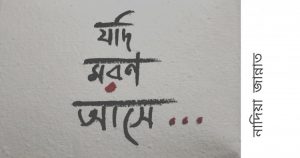 যদি
মরণ
আসে...
নাদিয়া জান্নাত